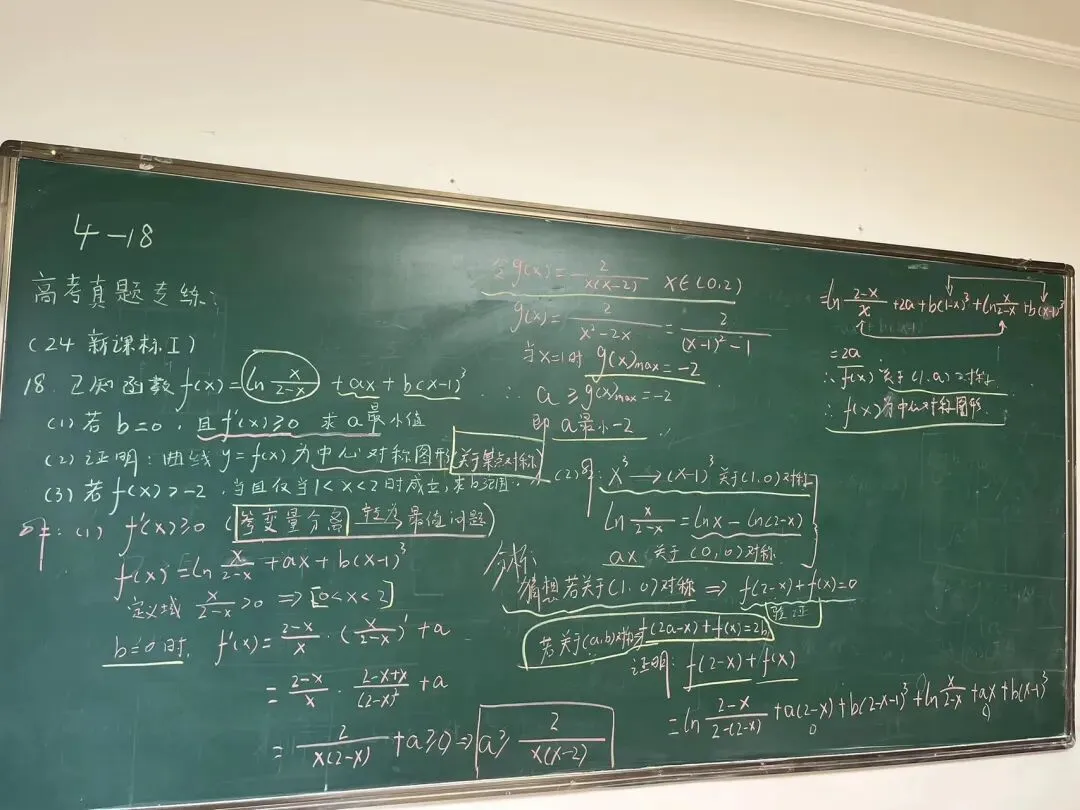 4-18
高考真题专练:
(24 新课标I)
18. 已知函数 f(x)=ln x/(2-x) +ax+b(x-1)³
(1) 若 b=0, 且 f'(x)≥0 求 a 最小值
(2) 证明: 曲线 y=f(x) 为中心对称图形 (关于某点对称)
(3) 若 f(x)>-2, 当且仅当 1<x<2 时成立, 求 b 范围
解: (1) f'(x)≥0 (参变量分离 转为 最值问题)
f(x)=ln x/(2-x) +ax+b(x-1)³
定义域 x/(2-x) >0 ⇒ 0<x<2
b=0时, f'(x)= (2-x)/x · (x/(2-x))' +a
= (2-x)/x · (2-x+x)/(2-x)² +a
= 2/(x(2-x)) +a≥0 ⇒ a≥ 2/(x(x-2))
令 g(x)= 2/(x(x-2)) x∈(0,2)
g(x)= 2/(x²-2x) = 2/((x-1)²-1)
当 x=1时 g(x)max=-2
∴ a≥g(x)max=-2
即 a最小-2
(2) x³ → (x-1)³ 关于(1,0)对称
ln x/(2-x) = lnx-ln(2-x)
ax 关于(0,0)对称
分析:
猜想若关于(1,0)对称 ⇒ f(2-x)+f(x)=0
验证
若关于(a,b)对称⇒f(2a-x)+f(x)=2b
证明: f(2-x)+f(x)
=ln (2-x)/(2-(2-x)) +a(2-x)+b(2-x-1)³+ln x/(2-x) +ax+b(x-1)³
=ln (2-x)/x +2a+b(1-x)³+ln x/(2-x) +b(x-1)³
=2a
∴ f(x)关于(1,a)对称
∴ f(x)为中心对称图形